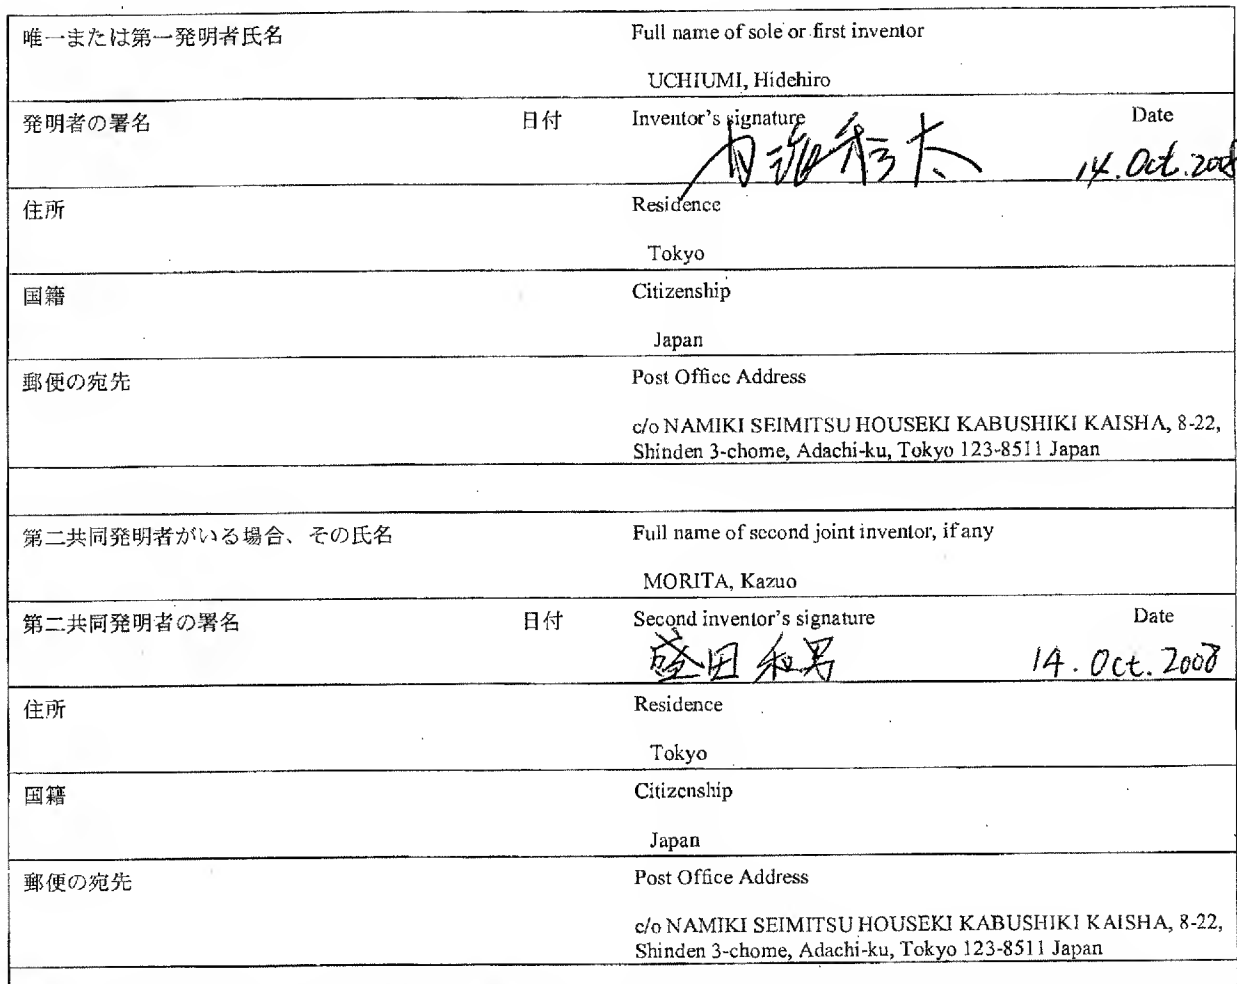 唯一または第一発明者氏名
Full name of sole or first inventor
UCHIUMI, Hidehiro
発明者の署名 日付
Inventor's signature Date
14. Oct. 2008
住所
Residence
Tokyo
国籍
Citizenship
Japan
郵便の宛先
Post Office Address
c/o NAMIKI SEIMITSU HOUSEKI KABUSHIKI KAISHA, 8-22,
Shinden 3-chome, Adachi-ku, Tokyo 123-8511 Japan
第二共同発明者がいる場合、その氏名
Full name of second joint inventor, if any
MORITA, Kazuo
第二共同発明者の署名 日付
Second inventor's signature Date
盛田 和男 14. Oct. 2008
住所
Residence
Tokyo
国籍
Citizenship
Japan
郵便の宛先
Post Office Address
c/o NAMIKI SEIMITSU HOUSEKI KABUSHIKI KAISHA, 8-22,
Shinden 3-chome, Adachi-ku, Tokyo 123-8511 Japan